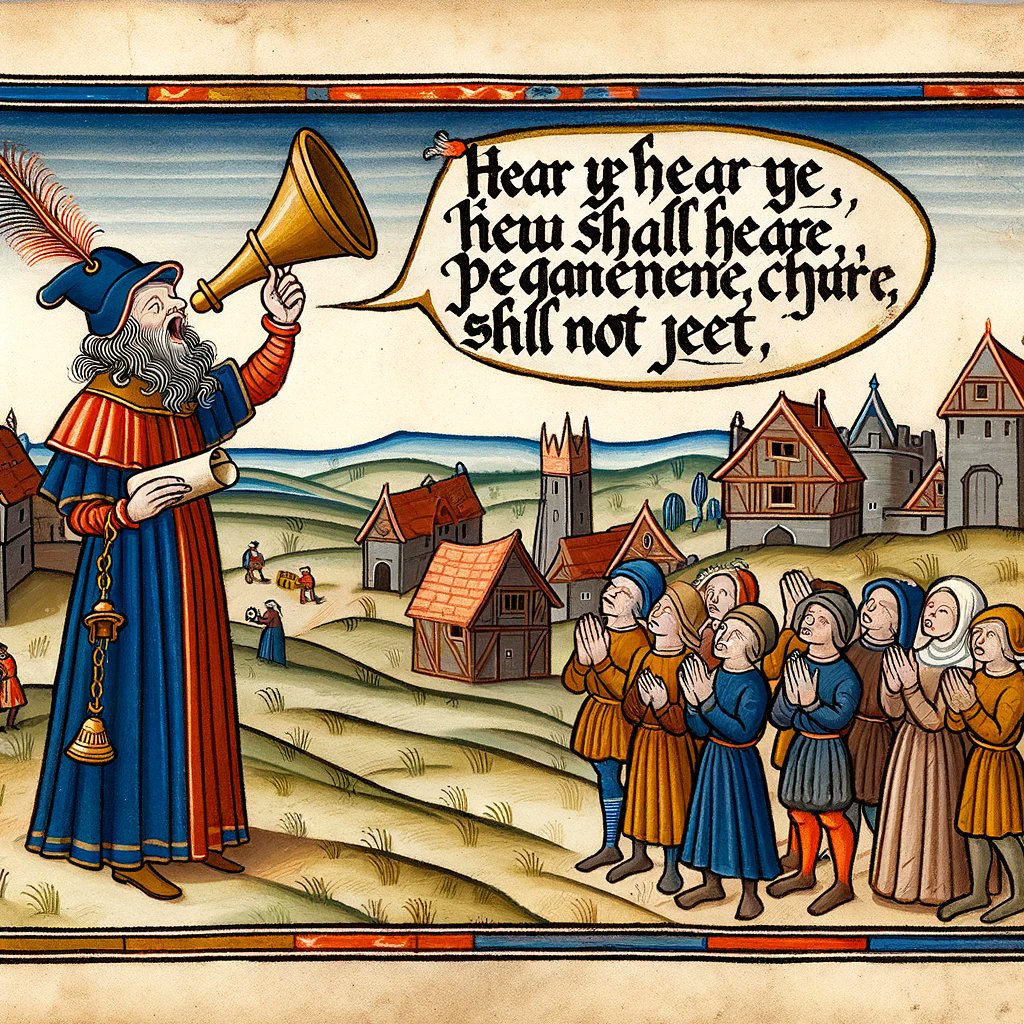 Hear ye hear ye,,
hew shall heare,,
peganenene, chure,
shll not jeet,